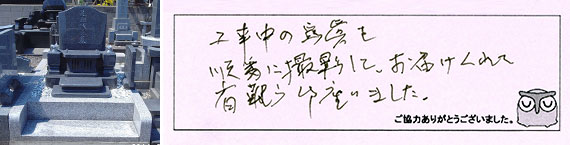 工事中の写真を
順番に撮影して、お届けくれて
有難う御座いました。
ご協力ありがとうございました。